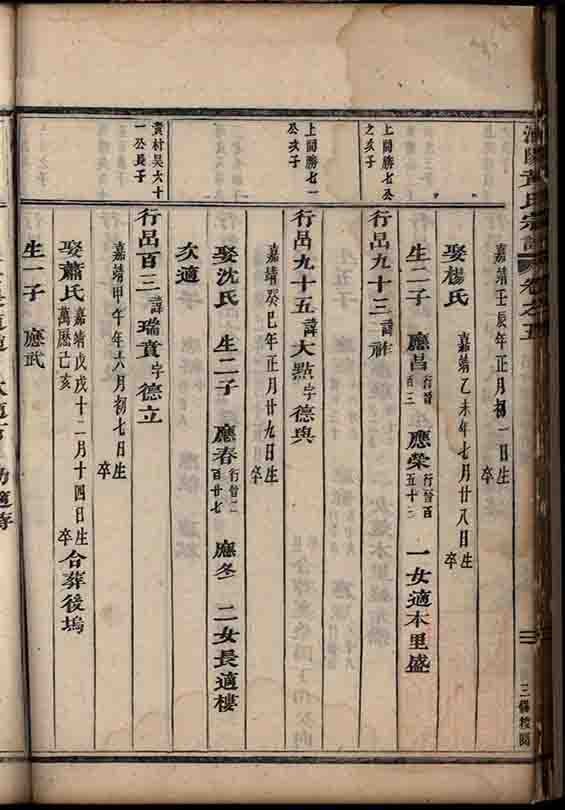 氏宗譜 卷之五
嘉靖壬辰年正月初一日生
卒
娶楊氏 嘉靖乙未年七月廿八日生
卒
生二子 應昌 行晉百三 應榮 行晉百五十 一女適本里盛
上閣勝七公之次子
行九十三 諱祚
上閣勝七一公次子
行九十五 諱大點 字德與
嘉靖癸巳年正月廿九日生
卒
娶沈氏 生二子 應春 行晉二百廿七 應冬 二女長適樓
次適
黃村吳六十一公長子
行百三 諱瑞賁 字德立
嘉靖甲午年六月初七日生
卒
娶蕭氏 嘉靖戊戌十二月十四日生
萬曆己亥 卒 合葬後塢
生一子 應武